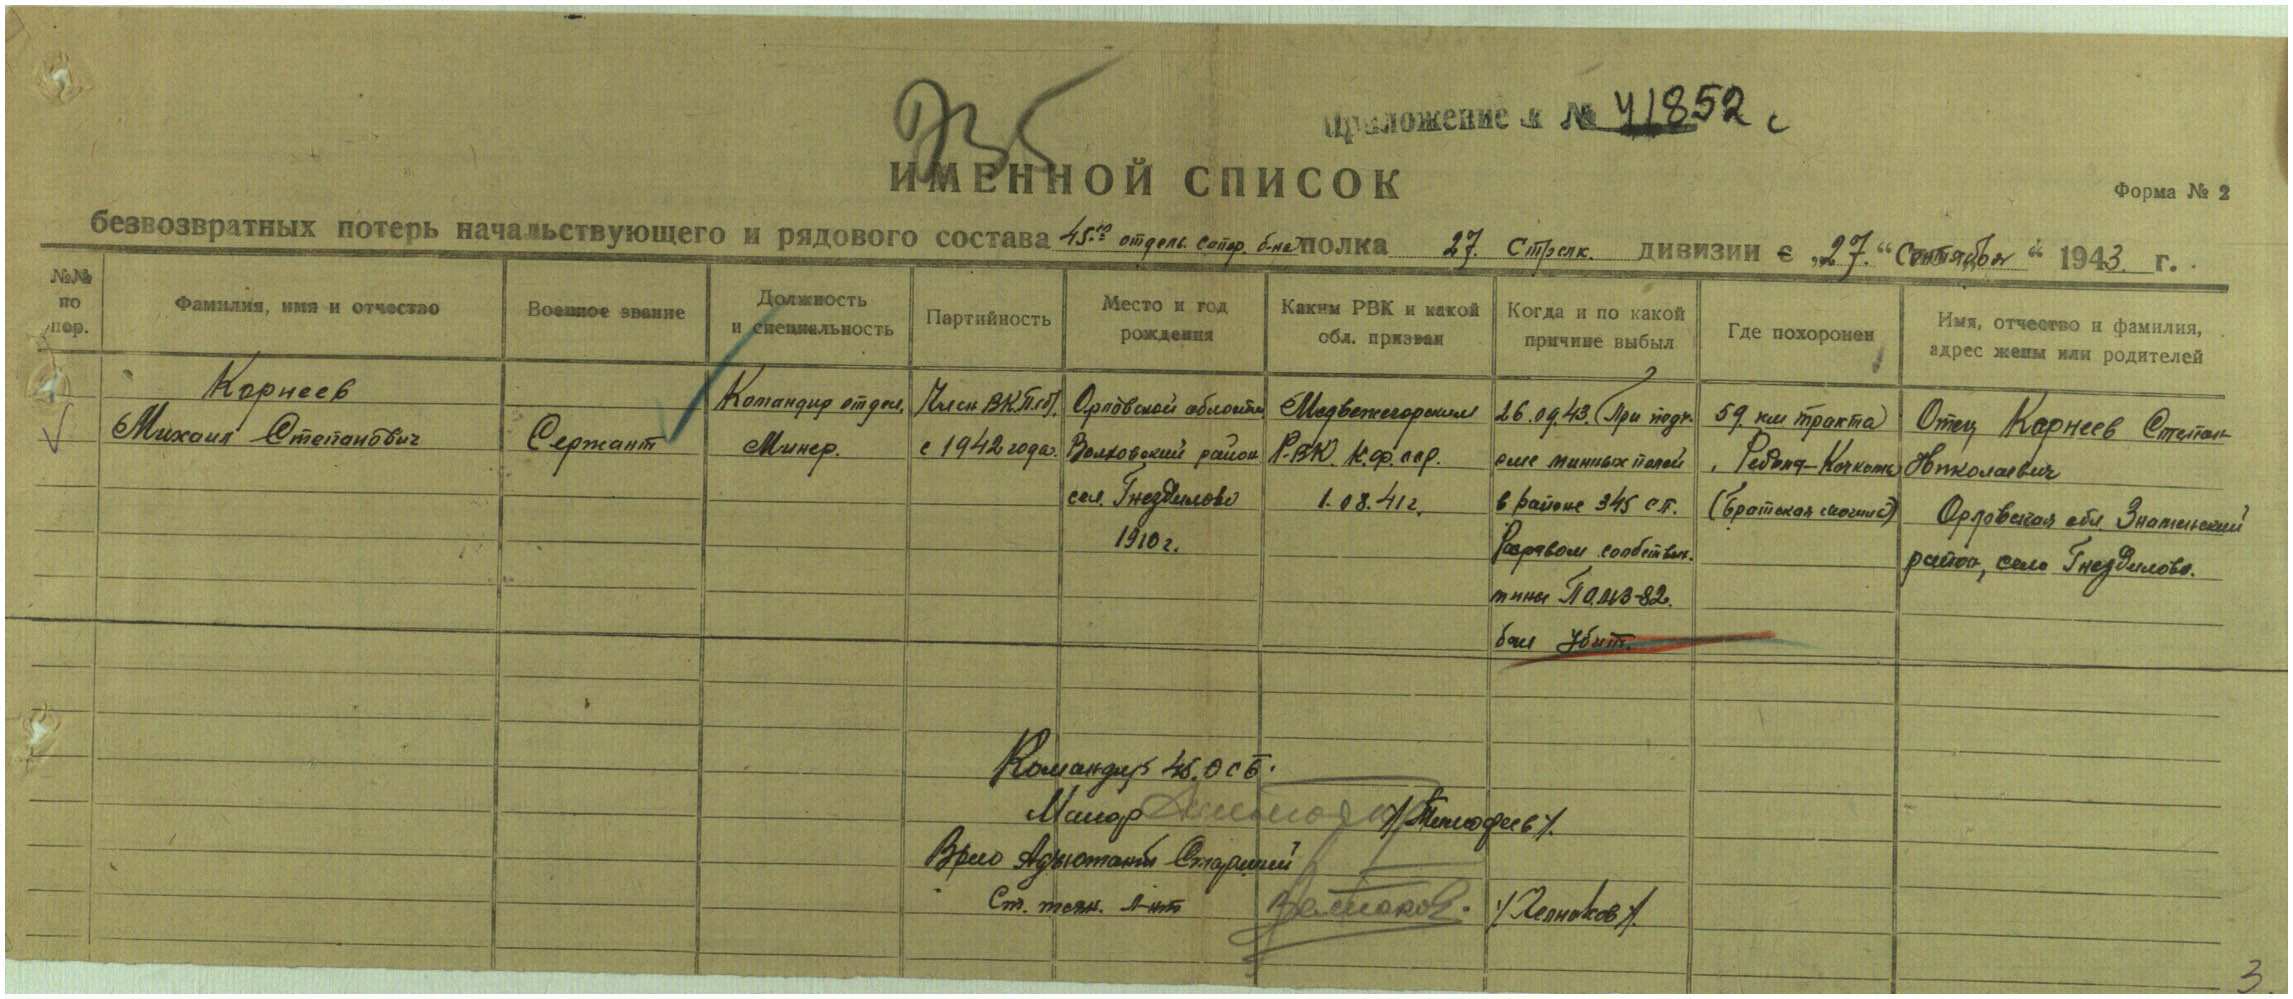 935
Приложение к № 41852 с
ИМЕННОЙ СПИСОК
Форма № 2
безвозвратных потерь начальствующего и рядового состава 45го отдель. сапер. б-на полка 27. Стрелк. дивизии с „27.“ Сентября “ 1943 г.
№№ по пор.
Фамилия, имя и отчество
Военное звание
Должность и специальность
Партийность
Место и год рождения
Каким РВК и какой обл. призван
Когда и по какой причине выбыл
Где похоронен
Имя, отчество и фамилия, адрес жены или родителей
Корнеев
Михаил Степанович
Сержант
Командир отдел.
Минер.
Член ВКП(б).
с 1942 года.
Орловской области
Волховский район
сел. Гнездилово
1910 г.
Медвежегорским
Р.ВК. К.ф.сср.
1.08.41 г.
26.09.43. При
минных полей
в районе 345 с.п.
Разрывом собствен.
мины ПОМЗ-82.
был убит.
59 км тракта
Ребола-Кочкома
(Братская могила)
Отец Корнеев Степан
Николаевич
Орловская обл. Знаменский
район, село Гнездилово.
Командир 45.ОСБ.
Майор /Тимофеев/.
Врио Адъютант Старший
Ст. техн. л-нт
3